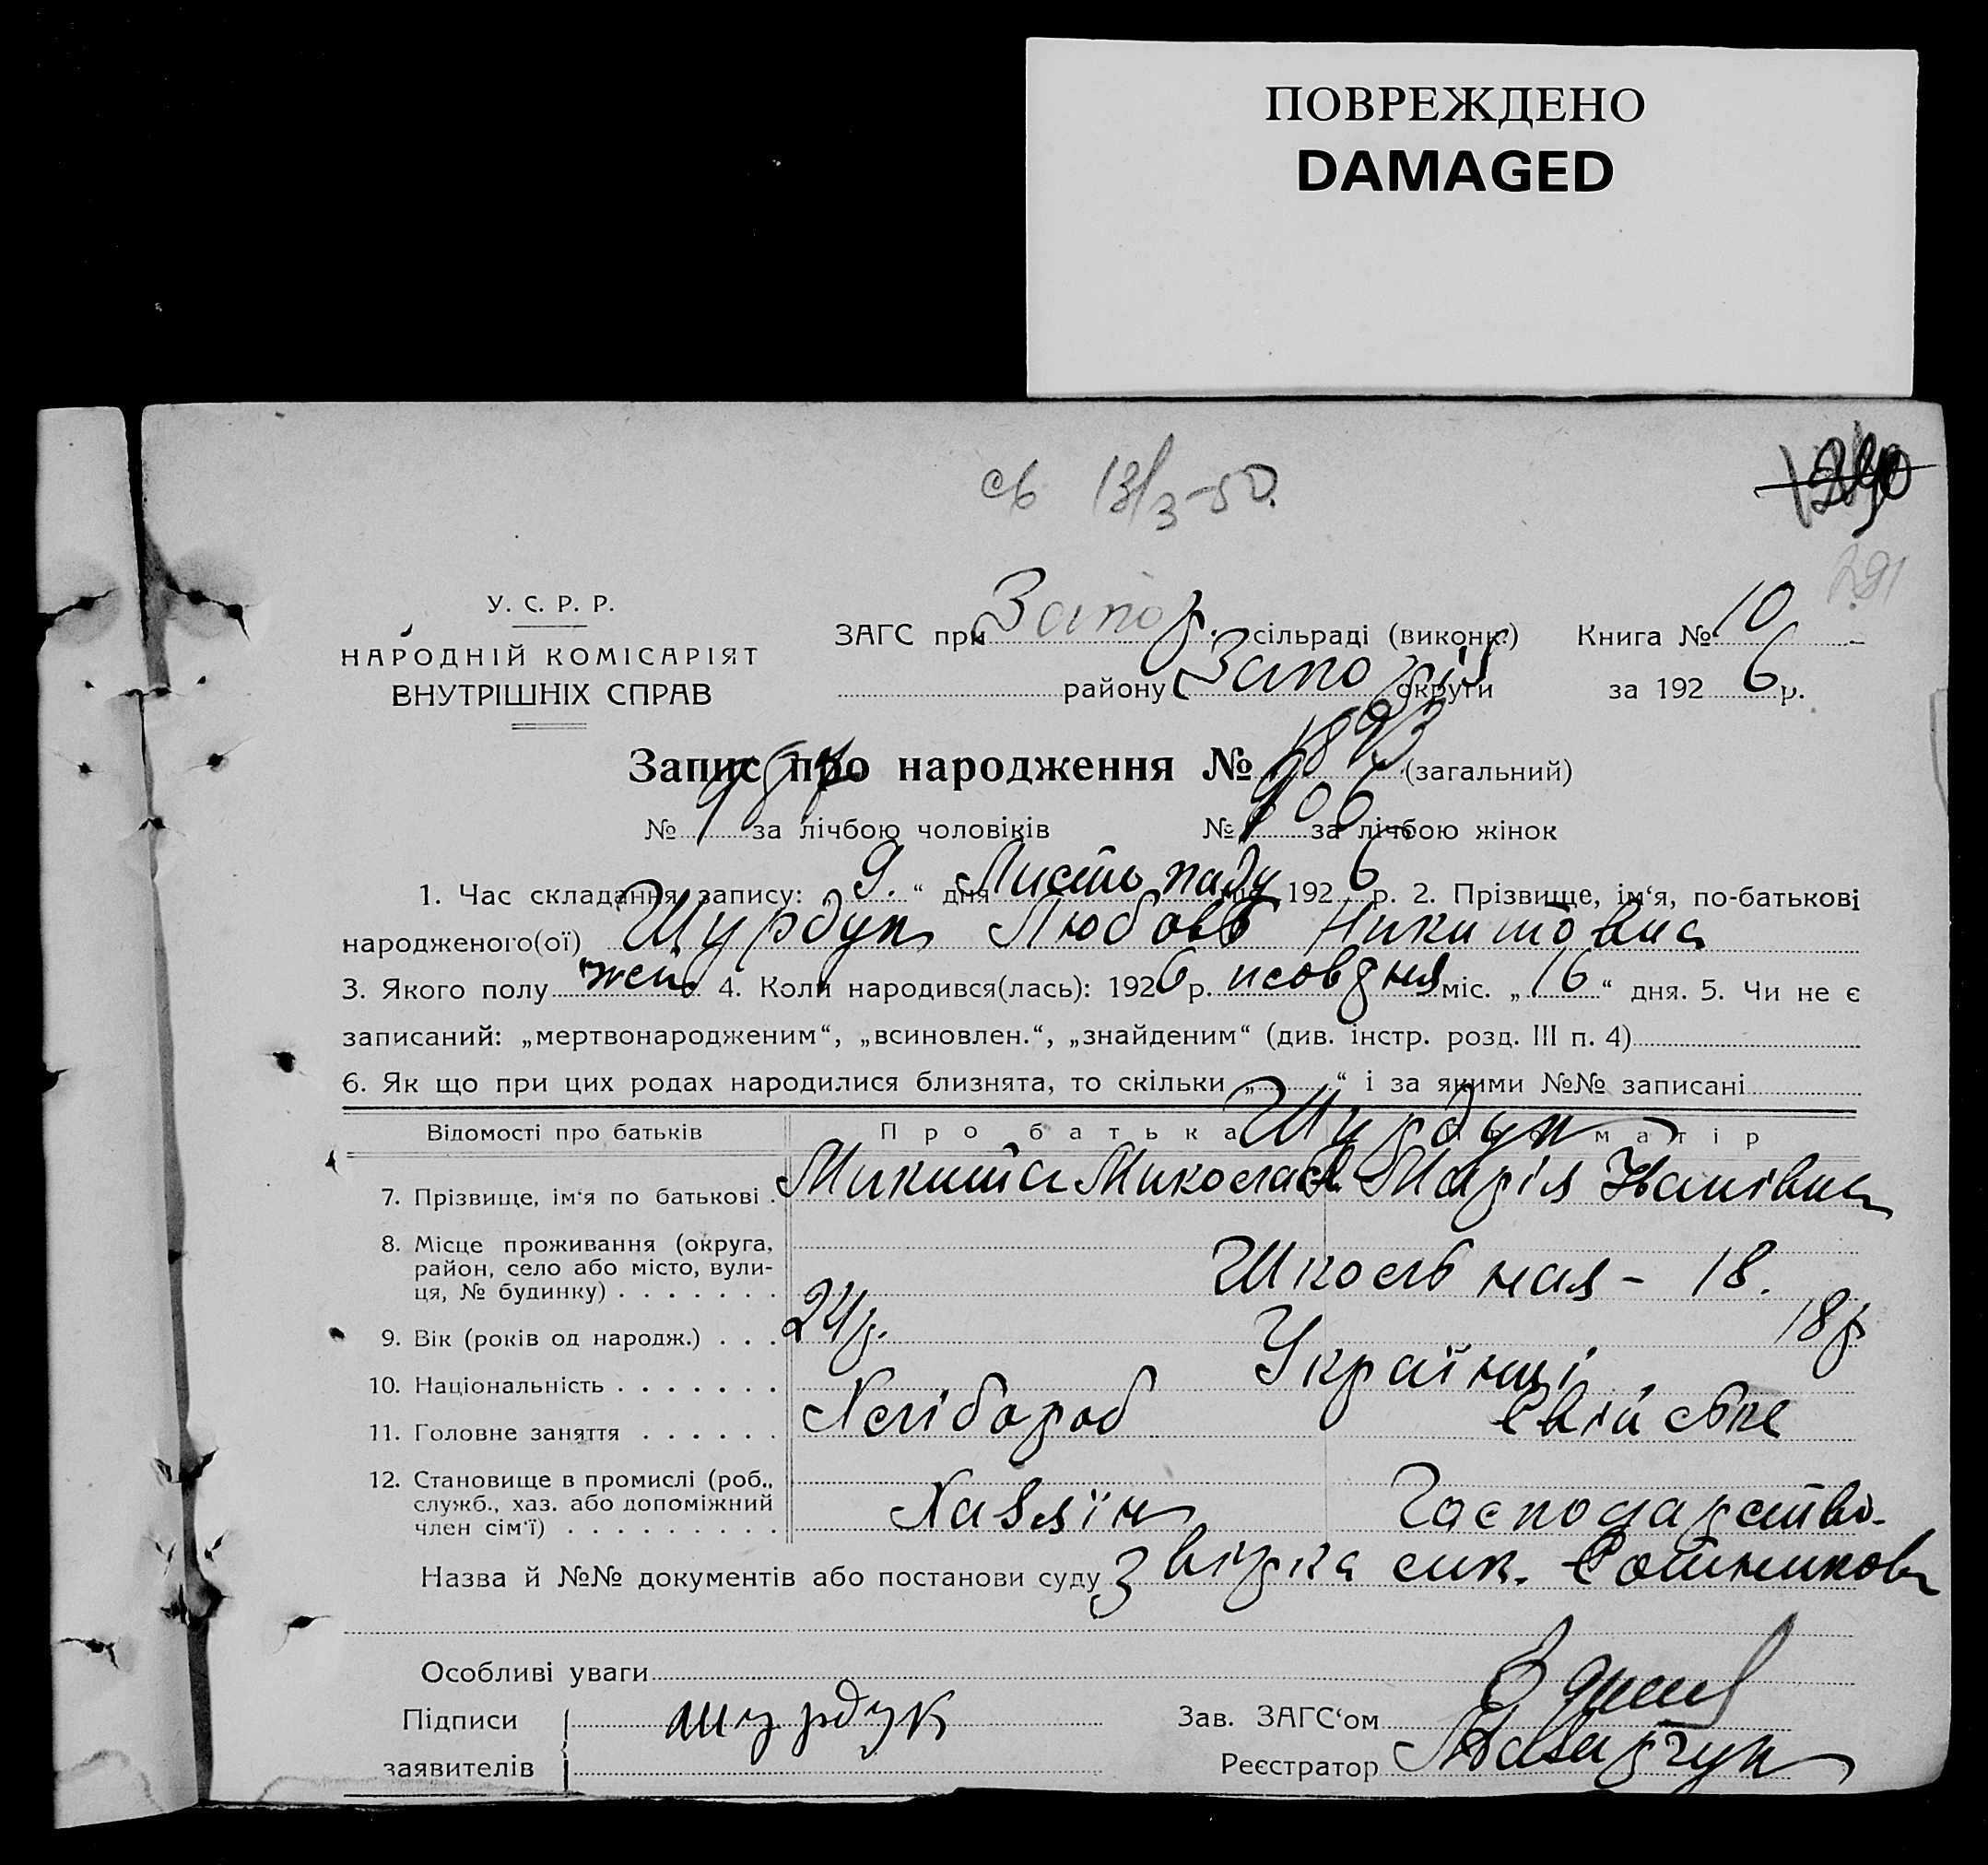 ПОВРЕЖДЕНО
DAMAGED
св 13/3-50.
290
291
У. С. Р. Р.
НАРОДНІЙ КОМІСАРІЯТ
ВНУТРІШНІХ СПРАВ
ЗАГС при Запор. сільраді (виконк.) Книга № 10
району Запоріз округи за 1926 р.
Запис про народження № 1893 (загальний)
№ за лічбою чоловіків № 906 за лічбою жінок
1. Час складання запису: „ 9. “ дня Листопаду міс. 1926 р. 2. Прізвище, ім‘я, по-батькові
народженого(ої) Шурдук Любовь Никитовна
3. Якого полу жен. 4. Коли народився(лась): 1926 р. жовдня міс. „ 16 “ дня. 5. Чи не є
записаний: „мертвонародженим“, „всиновлен.“, „знайденим“ (див. інстр. розд. III п. 4)
6. Як що при цих родах народилися близнята, то скільки „ “ і за якими №№ записані
Відомості про батьків Про батька Про матір
Шурдук
7. Прізвище, ім‘я по батькові . Микита Миколаєв. Марія Іванівна
8. Місце проживання (округа,
район, село або місто, вули-
ця, № будинку) . . . . . . . Школьная – 18.
9. Вік (років од народж.) . . . 24р. 18р
10. Національність . . . . . . . Українці
11. Головне заняття . . . . . . Хлібороб Свійське
12. Становище в промислі (роб.,
служб., хаз. або допоміжний
член сім‘ї) . . . . . . . . . Хазяїн Господарство.
Назва й №№ документів або постанови суду
Особливі уваги
Підписи шурдук Зав. ЗАГС‘ом
заявителів Реєстратор